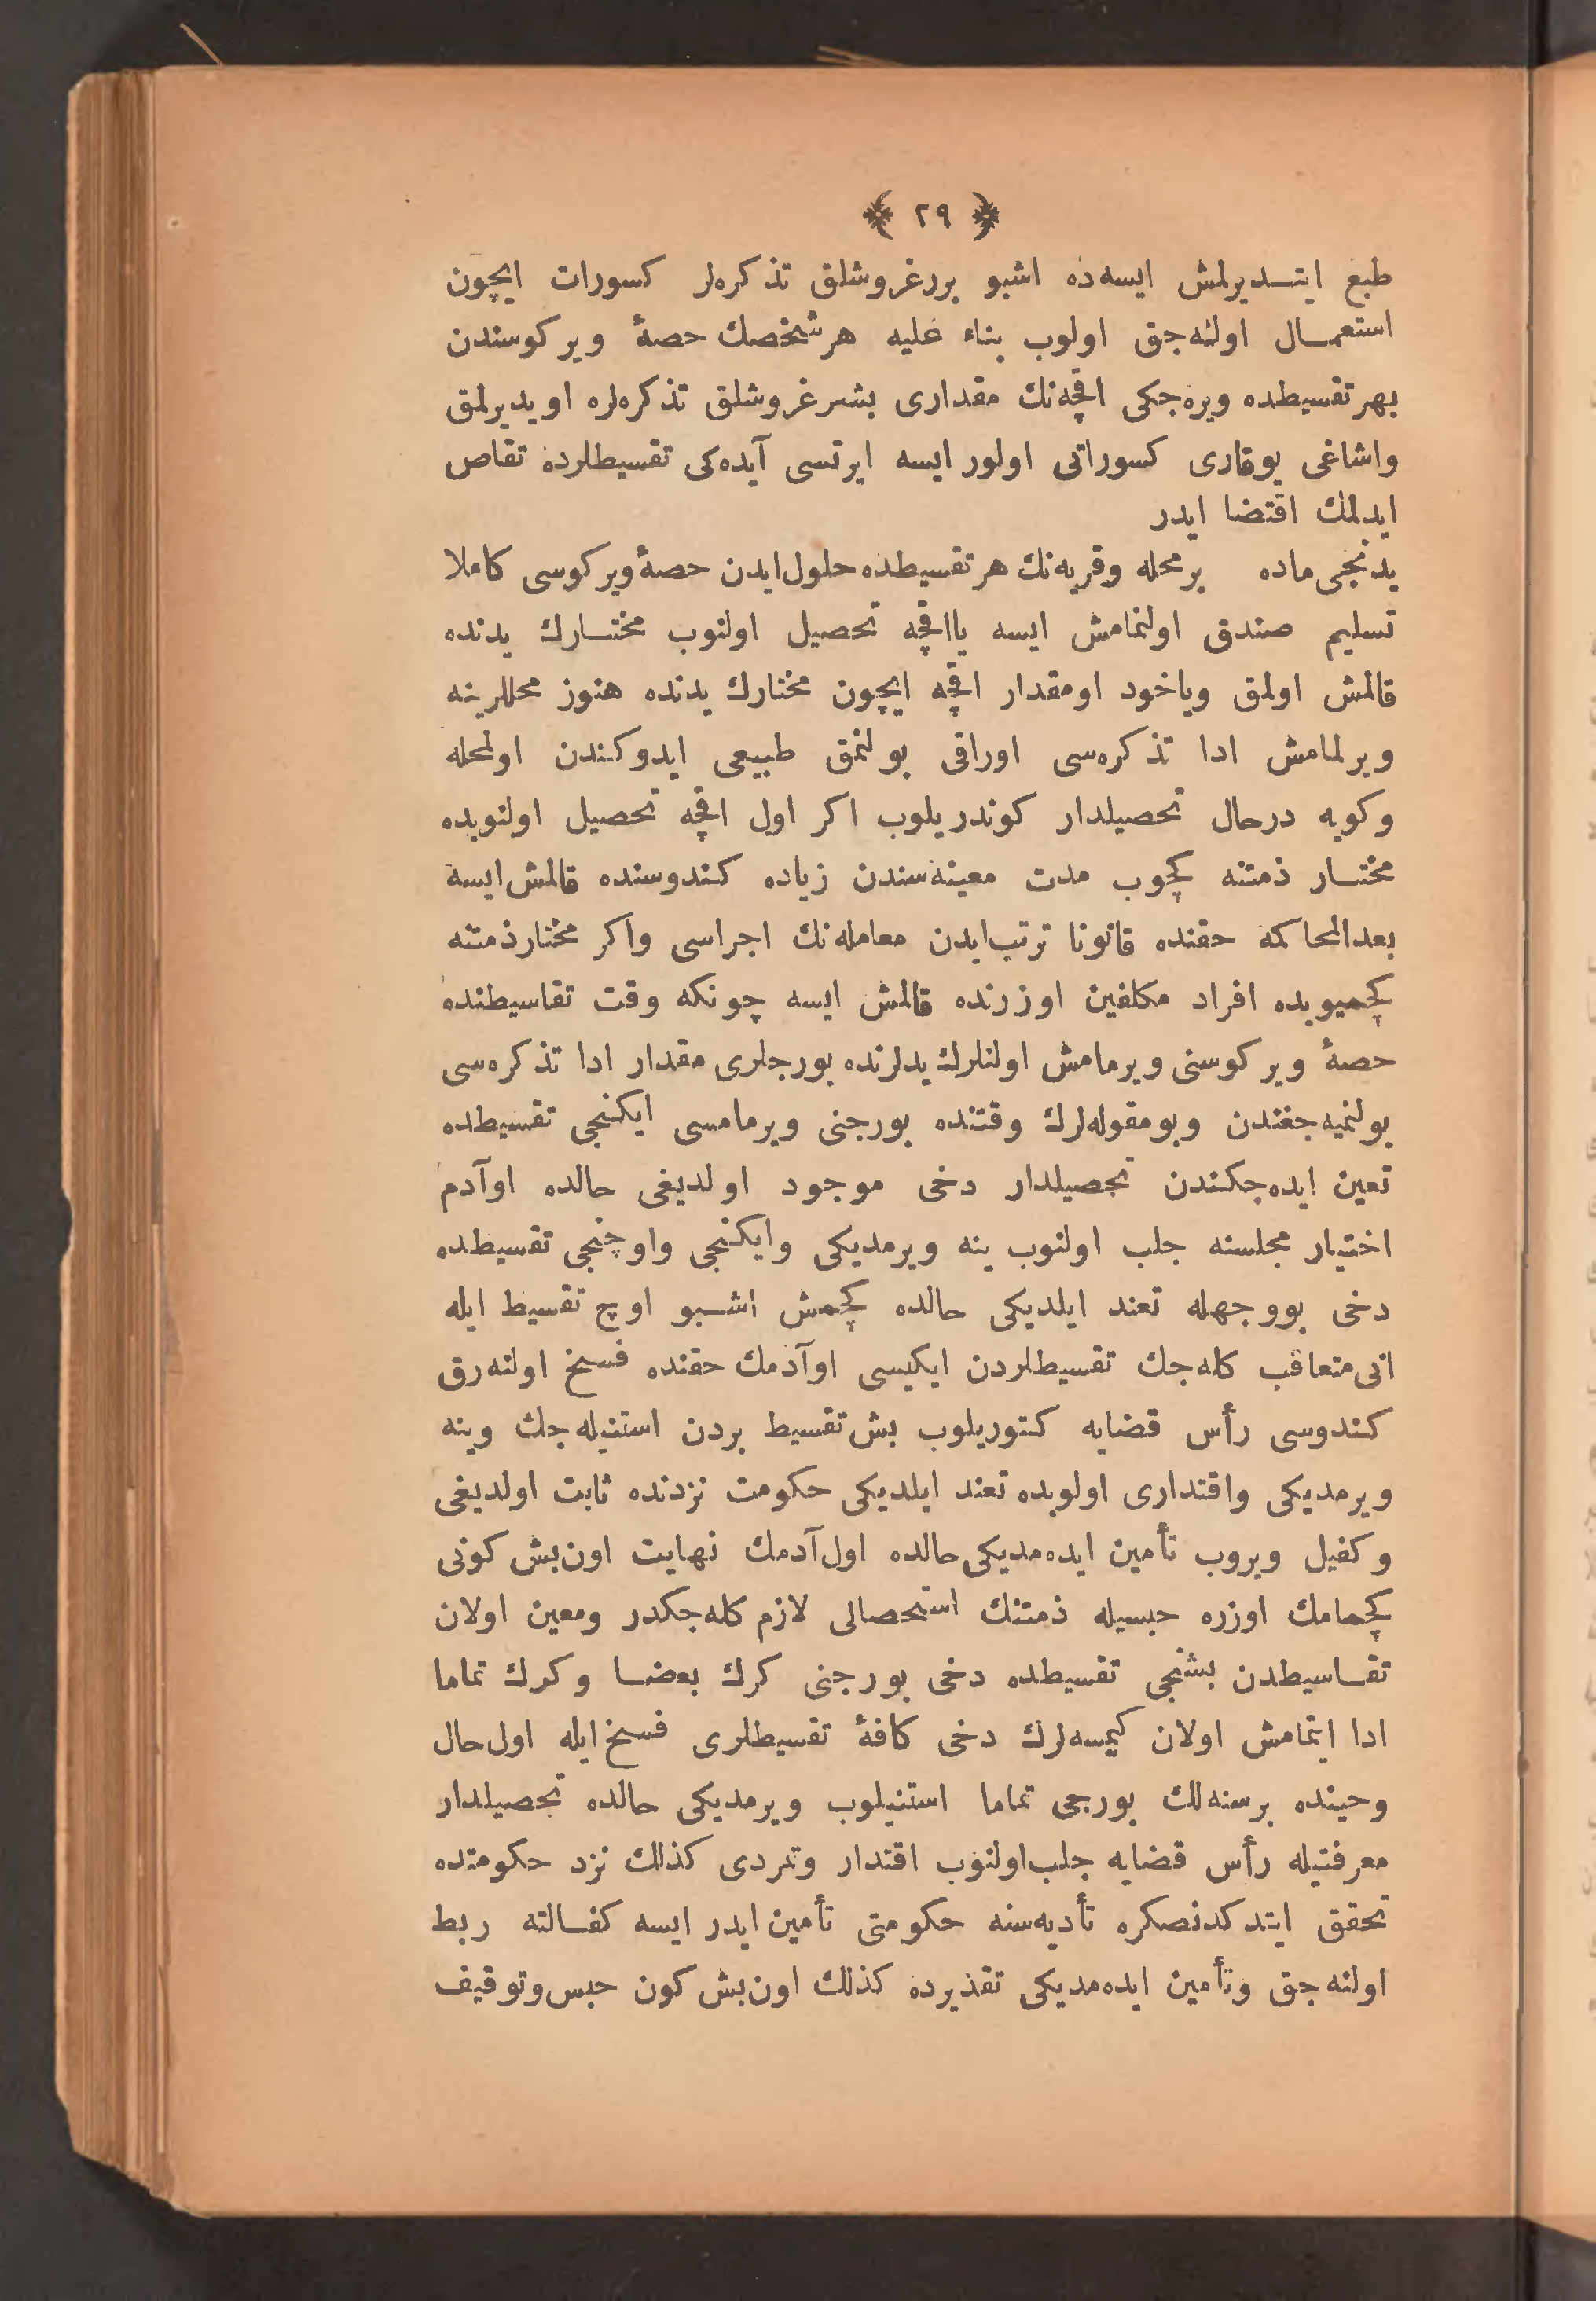 ﴿ ٢٩ ﴾
طبع ایتـدیرلمش ایسه‌ده اشبو بررغروشلق تذکره‌لر کسورات ایچون
استعمـال اولنه‌جق اولوب بناء علیه هرشخصك حصهٔ ویرکوسندن
بهر تقسیطده ویره‌جکی اقچه‌نك مقداری بشرغروشلق تذکره‌لره اویدیرلمق
واشاغی یوقاری کسوراتی اولور ایسه ایرتسی آیده‌کی تقسیطلرده تقاص
ایدلمك اقتضا ایدر
یدنجی ماده بر محله وقریه‌نك هر تقسیطده حلول ایدن حصهٔ ویرکوسی کاملا
تسلیم صندق اولنمامش ایسه یااقچه تحصیل اولنوب مختـارك یدنده
قالمش اولمق ویاخود اومقدار اقچه ایچون مختارك یدنده هنوز محللرینه
ویرلمامش ادا تذکره‌سی اوراقی بولنمق طبیعی ایدوکندن اولمحله
وکویه درحال تحصیلدار کوندریلوب اکر اول اقچه تحصیل اولنوبده
مختـار ذمتنه کچوب مدت معینه‌سندن زیاده کندوسنده قالمش ایسه
بعدالمحاکمه حقنده قانونا ترتب ایدن معامله‌نك اجراسی واکر مختار ذمتنه
کچمیوبده افراد مکلفین اوزرنده قالمش ایسه چونکه وقت تقاسیطنده
حصهٔ ویرکوسنی ویرمامش اولنلرك یدلرنده بورجلری مقدار ادا تذکره‌سی
بولنمیه‌جغندن وبومقوله‌لرك وقتنده بورجنی ویرمامسی ایکنجی تقسیطده
تعین ایده‌جکندن تحصیلدار دخی موجود اولدیغی حالده اوآدم
اختیار مجلسنه جلب اولنوب ینه ویرمدیکی وایکنجی واوچنجی تقسیطده
دخی بووجهله تعند ایلدیکی حالده کچمش اشـبو اوچ تقسیط ایله
انی متعاقب کله‌جك تقسیطلردن ایکیسی اوآدمك حقنده فسخ اولنه‌رق
کندوسی رأس قضایه کتوریلوب بش تقسیط بردن استنیله‌جك وینه
ویرمدیکی واقتداری اولوبده تعند ایلدیکی حکومت نزدنده ثابت اولدیغی
وکفیل ویروب تأمین ایده‌مدیکی حالده اول آدمك نهایت اون بش کونی
کچمامك اوزره حبسیله ذمتنك استحصالی لازم کله‌جکدر ومعین اولان
تقـاسیطدن بشنجی تقسیطده دخی بورجنی کرك بعضـا وکرك تماما
ادا ایتمامش اولان کیمسه‌لرك دخی کافهٔ تقسیطلری فسخ ایله اول حال
وحینده برسنه‌لك بورجی تماما استنیلوب ویرمدیکی حالده تحصیلدار
معرفتیله رأس قضایه جلب اولنوب اقتدار وتمردی کذلك نزد حکومتده
تحقق ایتدکدنصکره تأدیه‌سنه حکومتی تأمین ایدر ایسه کفـالته ربط
اولنه‌جق وتأمین ایده‌مدیکی تقدیرده کذلك اون بش کون حبس وتوقیف